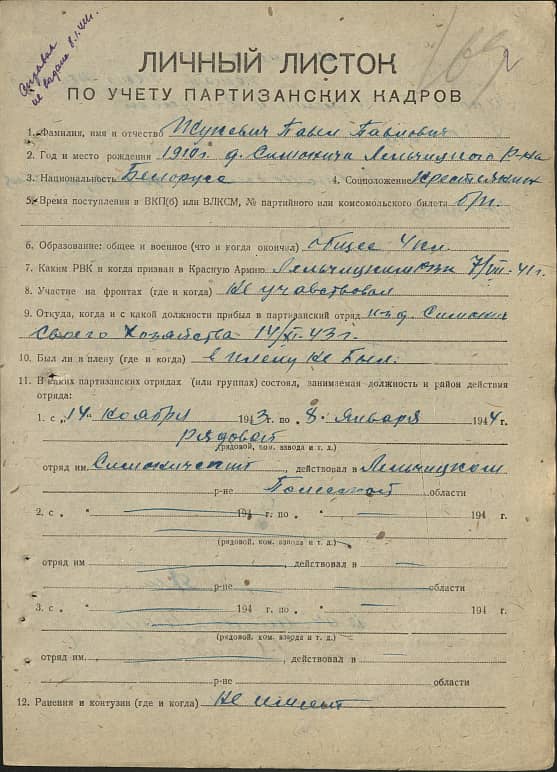 Справка
не выдана 8.I.44г.
ЛИЧНЫЙ ЛИСТОК
ПО УЧЕТУ ПАРТИЗАНСКИХ КАДРОВ
1. Фамилия, имя и отчество Жукевич Павел Павлович
2. Год и место рождения 1910г. д. Симоничи Лельчицкого р-на
3. Национальность Белорусс 4. Соцположение Крестьянин
5. Время поступления в ВКП(б) или ВЛКСМ, № партийного или комсомольского билета б/п.
6. Образование: общее и военное (что и когда окончил) общее 4 кл.
7. Каким РВК и когда призван в Красную Армию Лельчицким 7/VII-41г.
8. Участие на фронтах (где и когда) не учавствовал
9. Откуда, когда и с какой должности прибыл в партизанский отряд из д. Симоничи
своего хозяйства 14/XI-43г.
10. Был ли в плену (где и когда) в плену не был.
11. В каких партизанских отрядах (или группах) состоял, занимаемая должность и район действия
отряда:
1. с „14" ноября 1943 г. по „8. января 1944 г.
рядовой
(рядовой, ком. взвода и т. д.)
отряд им. Симоничский, действовал в Лельчицком
р-не Полесской области
2. с „ " 194 г. по „ " 194 г.
(рядовой, ком. взвода и т. д.)
отряд им , действовал в
р-не области
3. с „ " 194 г. по „ " 194 г.
(рядовой, ком. взвода и т. д.)
отряд им. , действовал в
р-не области
12. Ранения и контузии (где и когда) не имеет